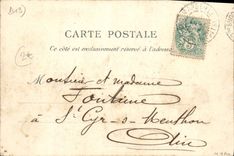 B12
CARTE POSTALE
Ce côté est exclusivement réservé à l'adresse
2€
Monsieur et madame
Fontaine
à St Cyr-s-Menthon
Ain